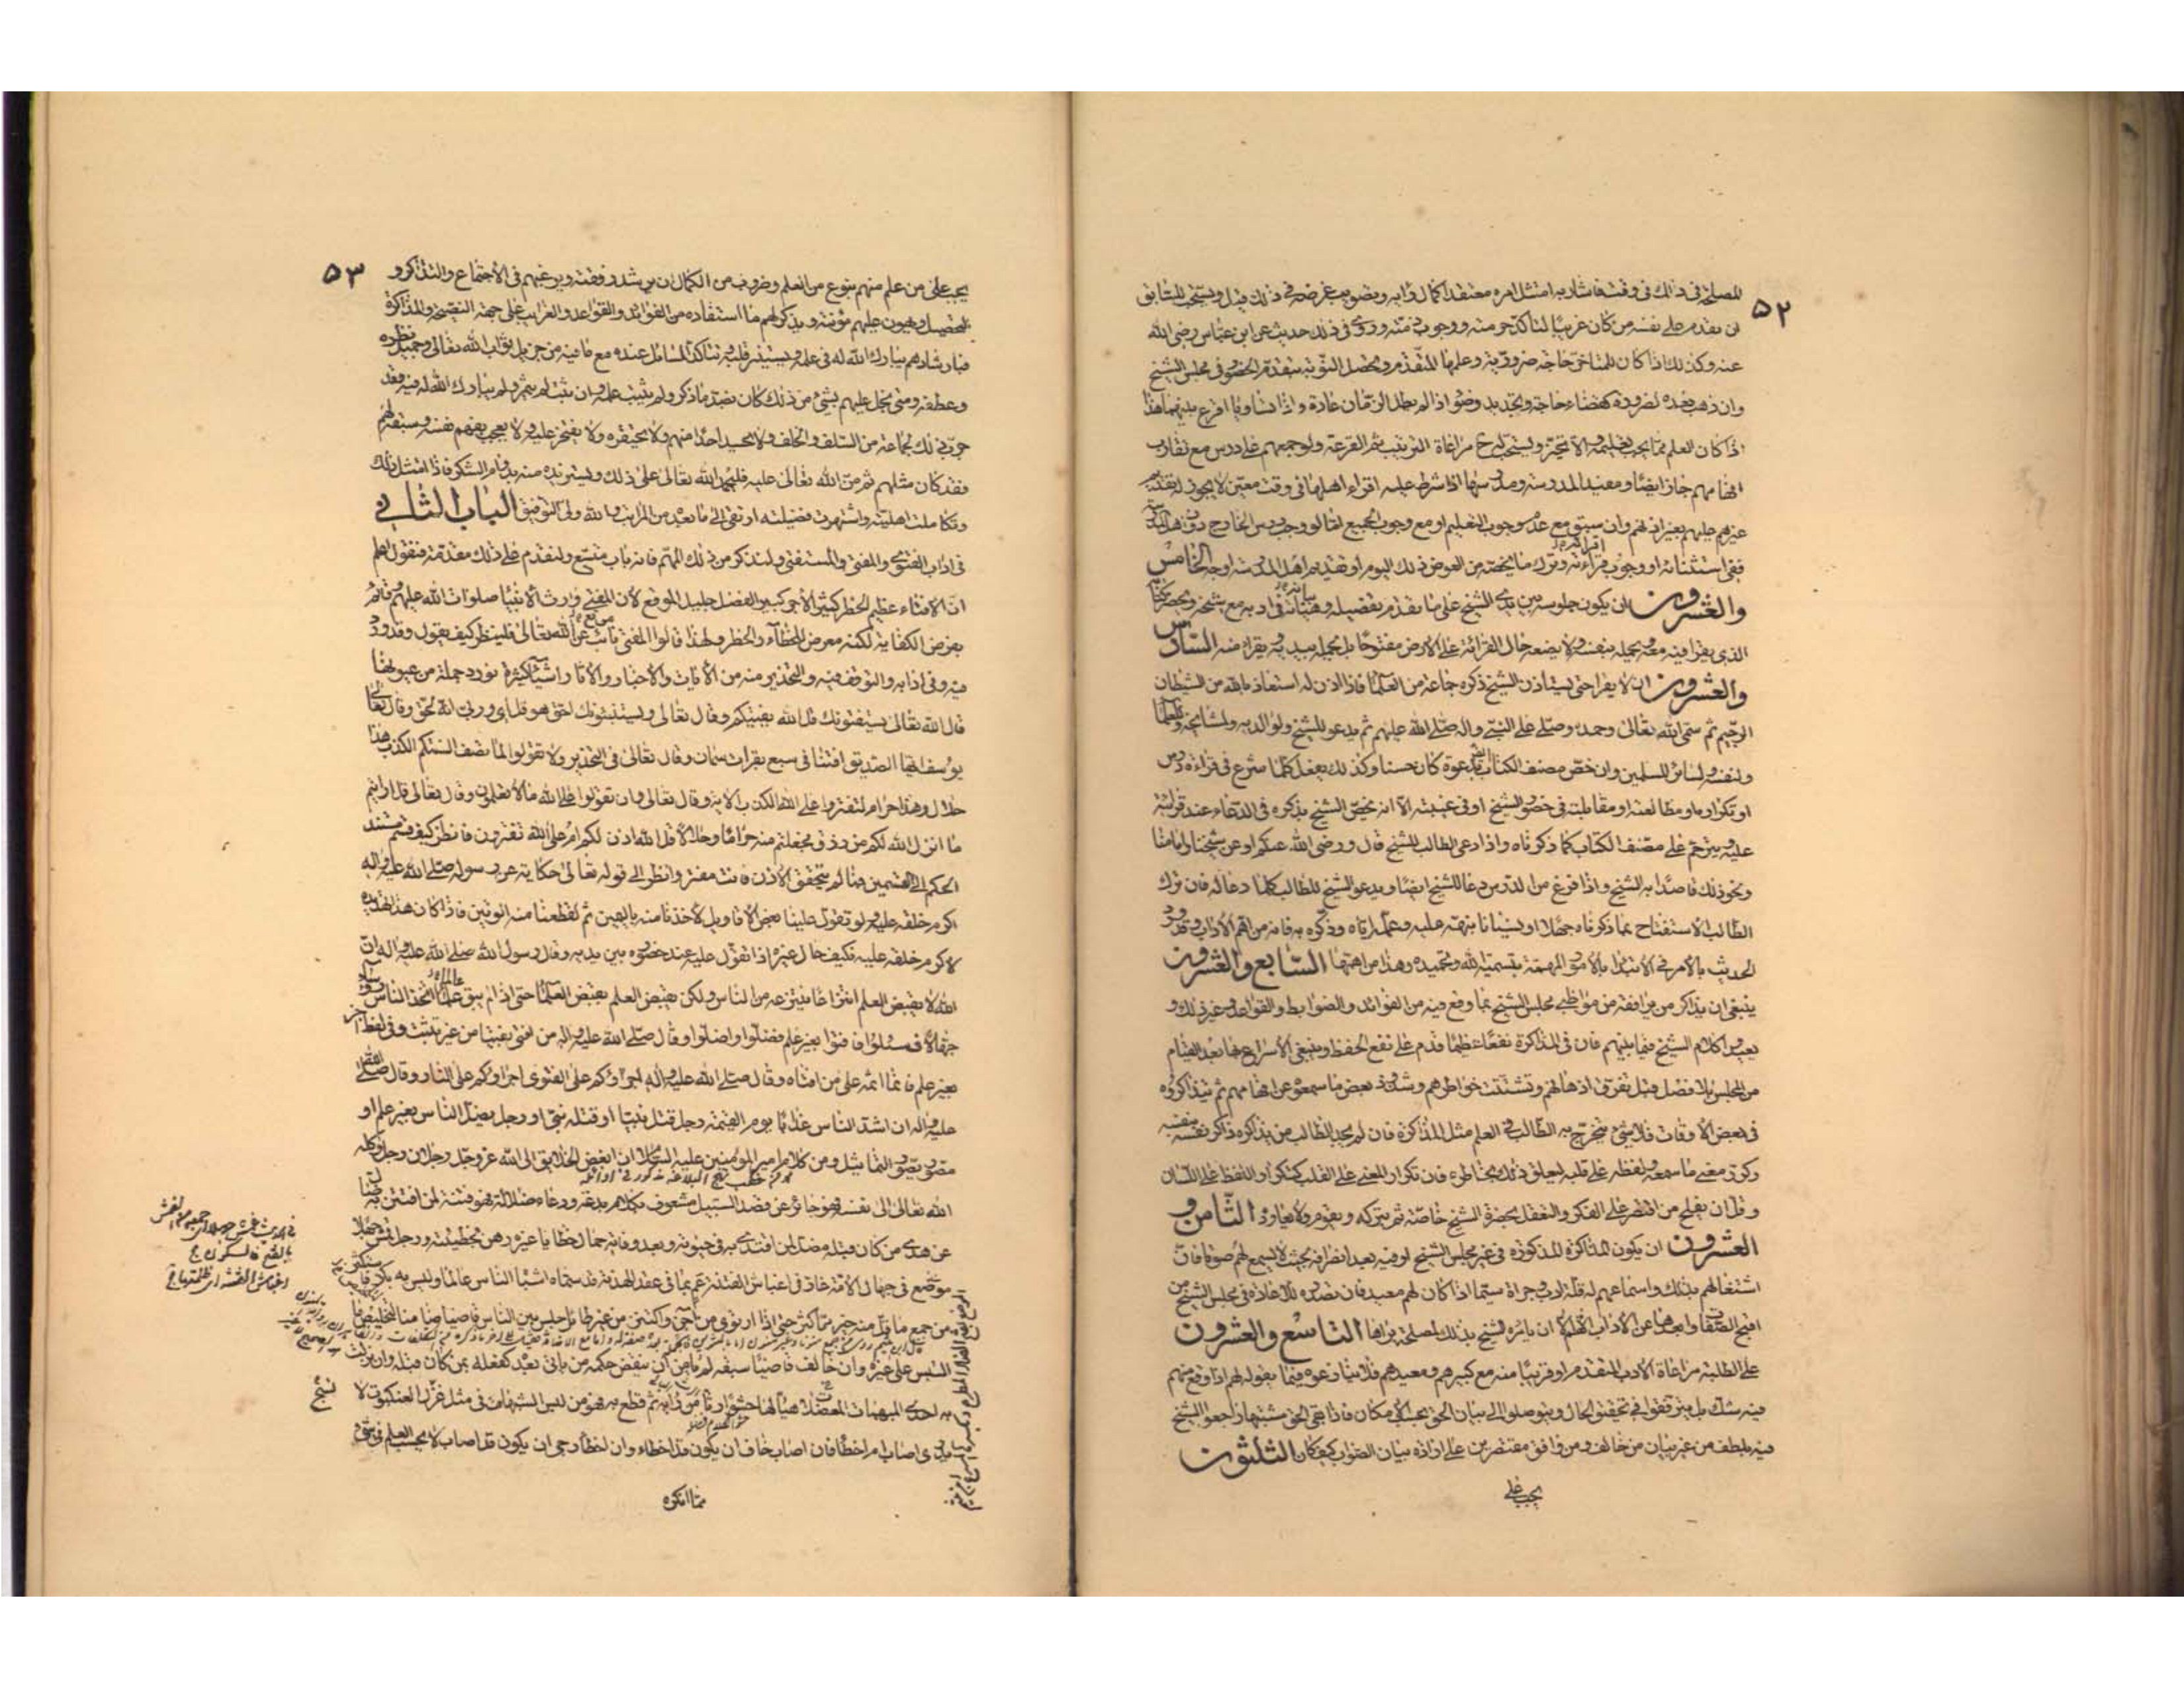 ۵۲
للمصلحة في ذلك في وقت فاشار به امتثل امره معتقدا كمال رأيه وتصويب غرضه في ذلك قيل ويستحب للسابق
ان يقدم على نفسه من كان غريبا لتأكد حرمته ووجوب ذمته وروى في ذلك حديث عن ابن عباس رضى الله
عنه وكذلك اذا كان للمتأخر حاجة ضرورية وعلمها المتقدم وتحصل النوبة بتقدم الحضور في مجلس الشيخ
وان ذهب بعده لضرورة كقضاء حاجة وتجديد وضوء اذا لم يطل الزمان عادة واذا تساويا اقرع بينهما هذا
اذا كان العلم مما يجب تعليمه والا تخير ويستحب له ح مراعاة الترتيب ثم القرعة ولو جمعهم على درس مع تقارب
افهامهم جاز ايضا ومعيد المدرسة ومدرسها اذا شرط عليه اقراء اهلها في وقت معين لا يجوز له تقديم
غيرهم عليهم بغير اذنهم وان سبق مع عدم وجوب التعليم او مع وجوب الجميع
ففى استثنائه او وجوب قرائته وترك ما يخصه من العوض ذلك اليوم او تقديم اهل المدرسة اوجه الخامس
والعشرون ان يكون جلوسه بين يدى الشيخ على ما تقدم تفصيله وهيأته في ادبه مع شيخه ويحضر كتابه
الذى يقرا فيه معه ويحمله بنفسه ولا يضعه حال القرائة على الارض مفتوحا بل يحمله بيديه ويقرا منه السادس
والعشرون ان لا يقرا حتى يستاذن الشيخ ذكره جماعة من العلماء فاذا اذن له استعاذ بالله من الشيطان
الرجيم ثم سمى الله تعالى وحمده وصلى على النبي واله صلى الله عليهم ثم يدعو للشيخ ولوالديه ولمشايخه وللعلماء
ولنفسه ولسائر المسلمين وان خص مصنف الكتاب بدعوة كان حسنا وكذلك يفعل كلما شرع في قراءة درس
او تكراره او مطالعته او مقابلته في حضور الشيخ او في غيبته الا انه يخص الشيخ بذكره في الدعاء عند قرائته
عليه ويترحم على مصنف الكتاب كما ذكرناه واذا دعى الطالب للشيخ قال ورضى الله عنكم او عن شيخنا وامامنا
ونحو ذلك قاصدا به الشيخ واذا فرغ من الدرس دعا للشيخ ايضا ويدعو الشيخ للطالب كلما دعا له فان ترك
الطالب الاستفتاح بما ذكرناه جهلا او نسيانا نبهه عليه وعلمه اياه وذكره به فانه من اهم الاداب وقد ورد
الحديث بالامر في الابتداء بالامور المهمة بتسمية الله وتحميده وهذا من اهمها السابع والعشرون
ينبغى ان يذاكر من يرافقه من مواظبى مجلس الشيخ بما وقع فيه من الفوائد والضوابط والقواعد وغير ذلك و
يعيد كلام الشيخ فيما بينهم فان في المذاكرة نفعا عظيما قدم على نفع الحفظ وينبغى الاسراع بها بعد القيام
من المجلس بلا فصل قبل تفرق اذهانهم وتشتت خواطرهم وشذوذ بعض ما سمعوه عن افهامهم ثم يتذاكروه
في بعض الاوقات فلا شئ يتخرج به الطالب في العلم مثل المذاكرة فان لم يجد الطالب من يذاكره ذاكر نفسه بنفسه
وكرر معنى ما سمعه ولفظه على قلبه ليعلق ذلك بخاطره فان تكرار المعنى على القلب كتكرار اللفظ على اللسان
وقل ان يفلح من اقتصر على الفكر والتعقل بحضرة الشيخ خاصة ثم يتركه ويقوم ولا يعاوده الثامن و
العشرون ان يكون المذاكرة المذكورة في غير مجلس الشيخ او فيه بعد انصرافه بحيث لا يسمع لهم صوتا فان
اشتغالهم بذلك واسماعهم له قلة ادب وجراة سيما اذا كان لهم معيد فان تصدره للاعادة في مجلس الشيخ من
اقبح الصفات وابعدها عن الاداب اللهم الا ان يامره الشيخ بذلك لمصلحة يراها التاسع والعشرون
على الطلبة مراعاة الادب المتقدم او قريبا منه مع كبيرهم ومعيدهم فلا ينازعوه فيما يقوله لهم اذا وقع منهم
فيه شك بل يترفقوا في تحقيق الحال ويتوصلوا الى بيان الحق بحسب الامكان فاذا بقى الحق مشتبها راجعوا الشيخ
فيه بلطف من غير بيان من خالف ومن وافق مقتصرين على ارادة بيان الصواب كيف كان الثلثون
يجب على
۵۳
يجب على من علم منهم بنوع من العلم وضرب من الكمال ان يرشد رفقته ويرغبهم في الاجتماع والتذاكر و
التحصيل ويهون عليهم مؤنته ويذكر لهم ما استفاده من الفوائد والقواعد والغرائب على جهة النصيحة والمذاكرة
فبارشادهم يبارك الله له في علمه ويستنير قلبه وتتأكد المسائل عنده مع ما فيه من جزيل ثواب الله تعالى وجميل نظره
وعطفه ومتى بخل عليهم بشئ من ذلك كان بضد ما ذكر ولم يثبت علمه وان ثبت لم يثمر ولم يبارك الله له فيه وقد
جرب ذلك لجماعة من السلف والخلف ولا يحسد احدا منهم ولا يحتقره ولا يفتخر عليه ولا يعجب بفهم نفسه وسبقه لهم
فقد كان مثلهم ثم من الله تعالى عليه فليحمد الله تعالى على ذلك ويستزيده منه بدوام الشكر فاذا امتثل ذلك
وتكاملت اهليته واشتهرت فضيلته ارتقى الى ما بعده من المراتب والله ولى التوفيق الباب الثانى
في اداب الفتوى والمفتى والمستفتى ولنذكر من ذلك المهم فانه باب متسع ولنقدم على ذلك مقدمة فنقول اعلم
ان الافتاء عظيم الخطر كثير الاجر كبير الفضل جليل الموقع لان المفتى وارث الانبياء صلوات الله عليهم وقائم
بفرض الكفاية لكنه معرض للخطاء والخطر ولهذا قالوا المفتى موقع عن الله تعالى فلينظر كيف يقول وقد ورد
فيه وفى ادابه والتوقف فيه والتحذير منه من الايات والاخبار والاثار اشياء كثيرة نورد جملة من عيونها
قال الله تعالى يستفتونك قل الله يفتيكم وقال تعالى ويستنبئونك احق هو قل اى وربى انه لحق وقال تعالى
يوسف ايها الصديق افتنا في سبع بقرات سمان وقال تعالى في التحذير ولا تقولوا لما تصف السنتكم الكذب هذا
حلال وهذا حرام لتفتروا على الله الكذب الاية وقال تعالى وان تقولوا على الله ما لا تعلمون وقال تعالى قل ارايتم
ما انزل الله لكم من رزق فجعلتم منه حراما وحلالا قل الله اذن لكم ام على الله تفترون فانظر كيف قسم مستند
الحكم الى القسمين فما لم يتحقق الاذن فانت مفتر وانظر الى قوله تعالى حكاية عن رسوله صلى الله عليه واله
اكرم خلقه عليه ولو تقول علينا بعض الاقاويل لاخذنا منه باليمين ثم لقطعنا منه الوتين فاذا كان هذا تهديده
لاكرم خلقه عليه فكيف حال غيره اذا تقول عليه عند حضوره بين يديه وقال رسول الله صلى الله عليه واله ان
الله لا يقبض العلم انتزاعا ينتزعه من الناس ولكن يقبض العلم بقبض العلماء حتى اذا لم يبق عالما اتخذ الناس رؤساء
جهالا فسئلوا فافتوا بغير علم فضلوا واضلوا وقال صلى الله عليه واله من افتى بفتيا من غير تثبت وفي لفظ اخر
بغير علم فانما اثمه على من افتاه وقال صلى الله عليه واله اجرؤكم على الفتوى اجرؤكم على النار وقال صلى الله
عليه واله ان اشد الناس عذابا يوم القيمة رجل قتل نبيا او قتله نبى او رجل يضل الناس بغير علم او
مصور يصور التماثيل ومن كلام امير المؤمنين عليه السلام ان ابغض الخلايق الى الله عز وجل رجلان رجل وكله
الله تعالى الى نفسه فهو جائر عن قصد السبيل مشعوف بكلام بدعة ودعاء ضلالة فهو فتنة لمن افتتن به ضال
عن هدى من كان قبله مضل لمن اقتدى به في حيوته وبعد وفاته حمال خطايا غيره رهن بخطيئته ورجل قمش جهلا
موضع في جهال الامة غاد في اغباش الفتنة عم بما في عقد الهدنة قد سماه اشباه الناس عالما وليس به بكر فاستكثر
من جمع ما قل منه خير مما كثر حتى اذا ارتوى من آجن واكتنز من غير طائل جلس بين الناس قاضيا ضامنا لتخليص ما
التبس على غيره وان خالف قاضيا سبقه لم يامن ان ينقض حكمه من ياتى بعده كفعله بمن كان قبله وان نزلت
به احدى المبهمات المعضلات هيأ لها حشوا رثا من رايه ثم قطع به فهو من لبس الشبهات في مثل غزل العنكبوت لا
يدرى اصاب ام اخطأ فان اصاب خاف ان يكون قد اخطاء وان اخطأ رجى ان يكون قد اصاب لا يحسب العلم في شئ
مما انكره
نسج